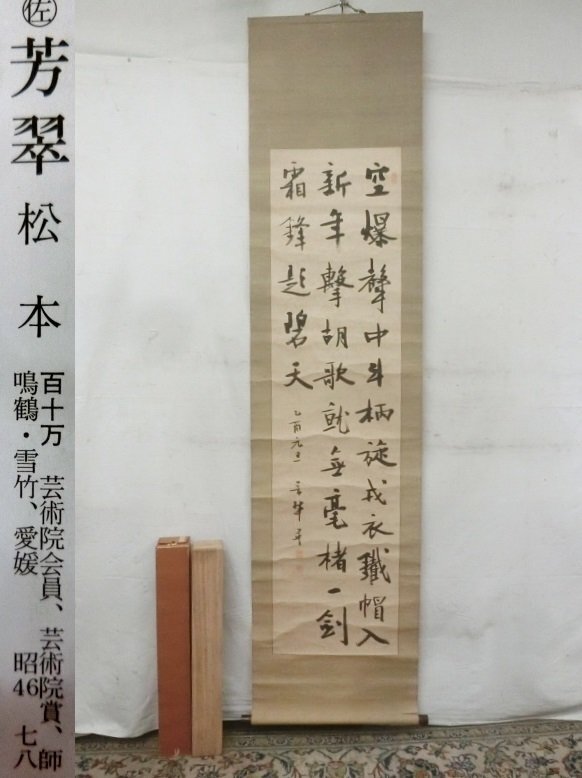 佐
芳翠松本
百十万 芸術院会員、芸術院賞、師
鳴鶴・雪竹、愛媛 昭46 七八
空爆聲中斗柄旋戎衣鐵帽入
新年擊胡歌就無毫楮一劍
霜鋒題碧天
乙酉元旦